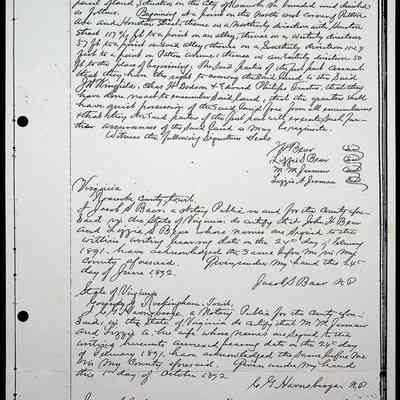 parcel of land, situate in the City of Roanoke Va. bounded and described
as follows: Beginning at a point on the North west corner of Patton
Ave and Henston Street; thence in a Northerly direction with Henston
Street 107 9/12 ft to a point on an alley; thence in a Westerly direction
50 ft to a point on said alley; thence in a Southerly direction 104.9
feet to a point on Patton Avenue; thence in an easterly direction 50
ft to the place of beginning. The Said parties of the first part covenant
that they have the right to convey the said land to the said
J W Winfield, Chas H. Dodson & Edward Philips Trustee, that the grantee shall
have quiet possession of the said land free from all encumbrances
and that they the said parties of the first part will execute such fur-
ther assurances of the said land as may be requisite.
Witness the following Signatures & Seals
J H Bear
Lizzie S Bear
M M Jarman
Lizzie A Jarman
Virginia
Roanoke County, to wit:
I Jacob S Baer a Notary Public in and for the County afore-
said in the State of Virginia do certify that John H Bear
and Lizzie S Bear whose names are signed to the
within writing bearing date on the 24th day of February
1891, have acknowledged the same before me in my
County aforesaid. Given under my hand this 24th
day of June 1892.
Jacob S Baer N.P.
State of Virginia
County of Rockingham to wit:
I C G Harnsberger, a Notary Public for the County afore-
said, in the State of Virginia do certify that M M Jarman
and Lizzie A his wife whose names are signed to the
writing hereunto annexed bearing date on the 24th day
of February 1891. have acknowledged the same before me
in my County aforesaid. Given under my hand
this 1st day of October 1892
C. G. Harnsberger N.P.